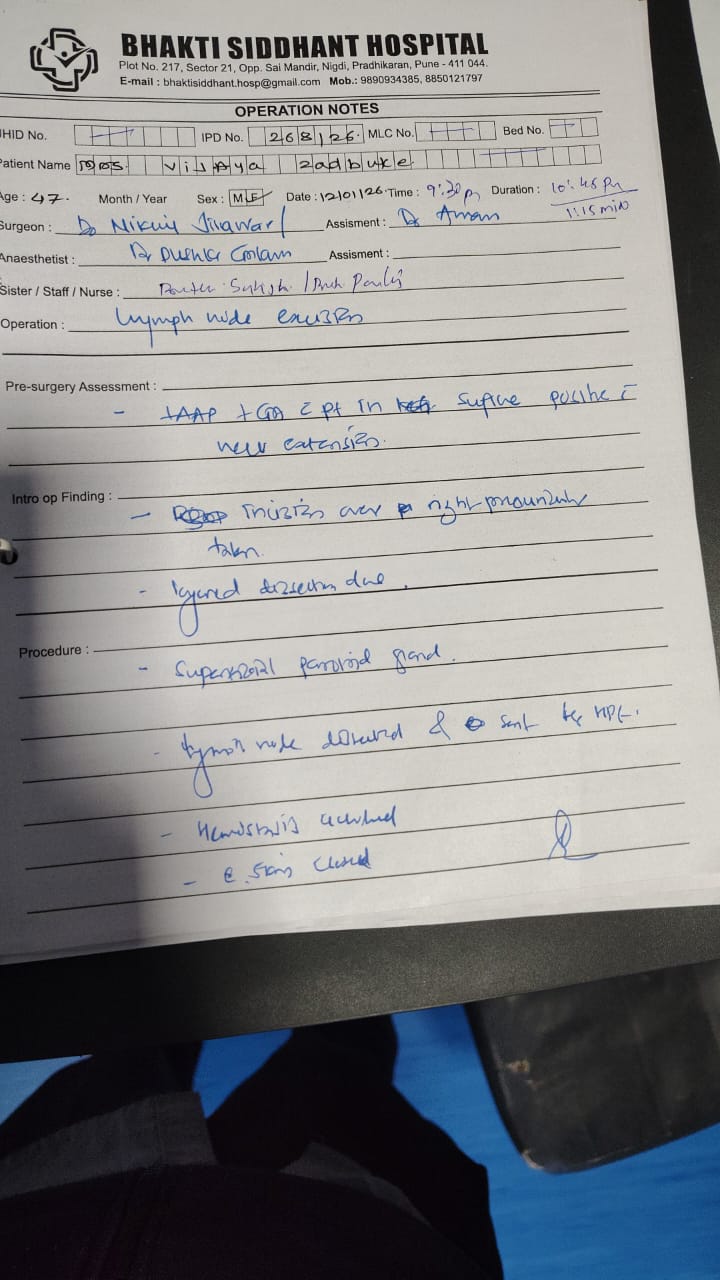 BHAKTI SIDDHANT HOSPITAL
Plot No. 217, Sector 21, Opp. Sai Mandir, Nigdi, Pradhikaran, Pune - 411 044.
E-mail : bhaktisiddhant.hosp@gmail.com Mob.: 9890934385, 8850121797
OPERATION NOTES
HID No. IPD No. 268/26. MLC No. Bed No.
Patient Name Mrs. Zadbuke
Age : 47. Month / Year Sex : M/F Date : 12/01/26 Time : 9:30 pm Duration : 10:45 pm
1:15 min
Surgeon : Dr Assisment : Dr Aman
Anaesthetist : Dr Assisment :
Sister / Staff / Nurse :
Operation : Lymph node excision
Pre-surgery Assessment :
- + GA c pt in supine c
extension.
Intro op Finding :
- over right
taken.
- layered dissection due.
Procedure :
- Superficial gland.
- lymph node & sent for HPE.
- Hemostasis
- Skin closed